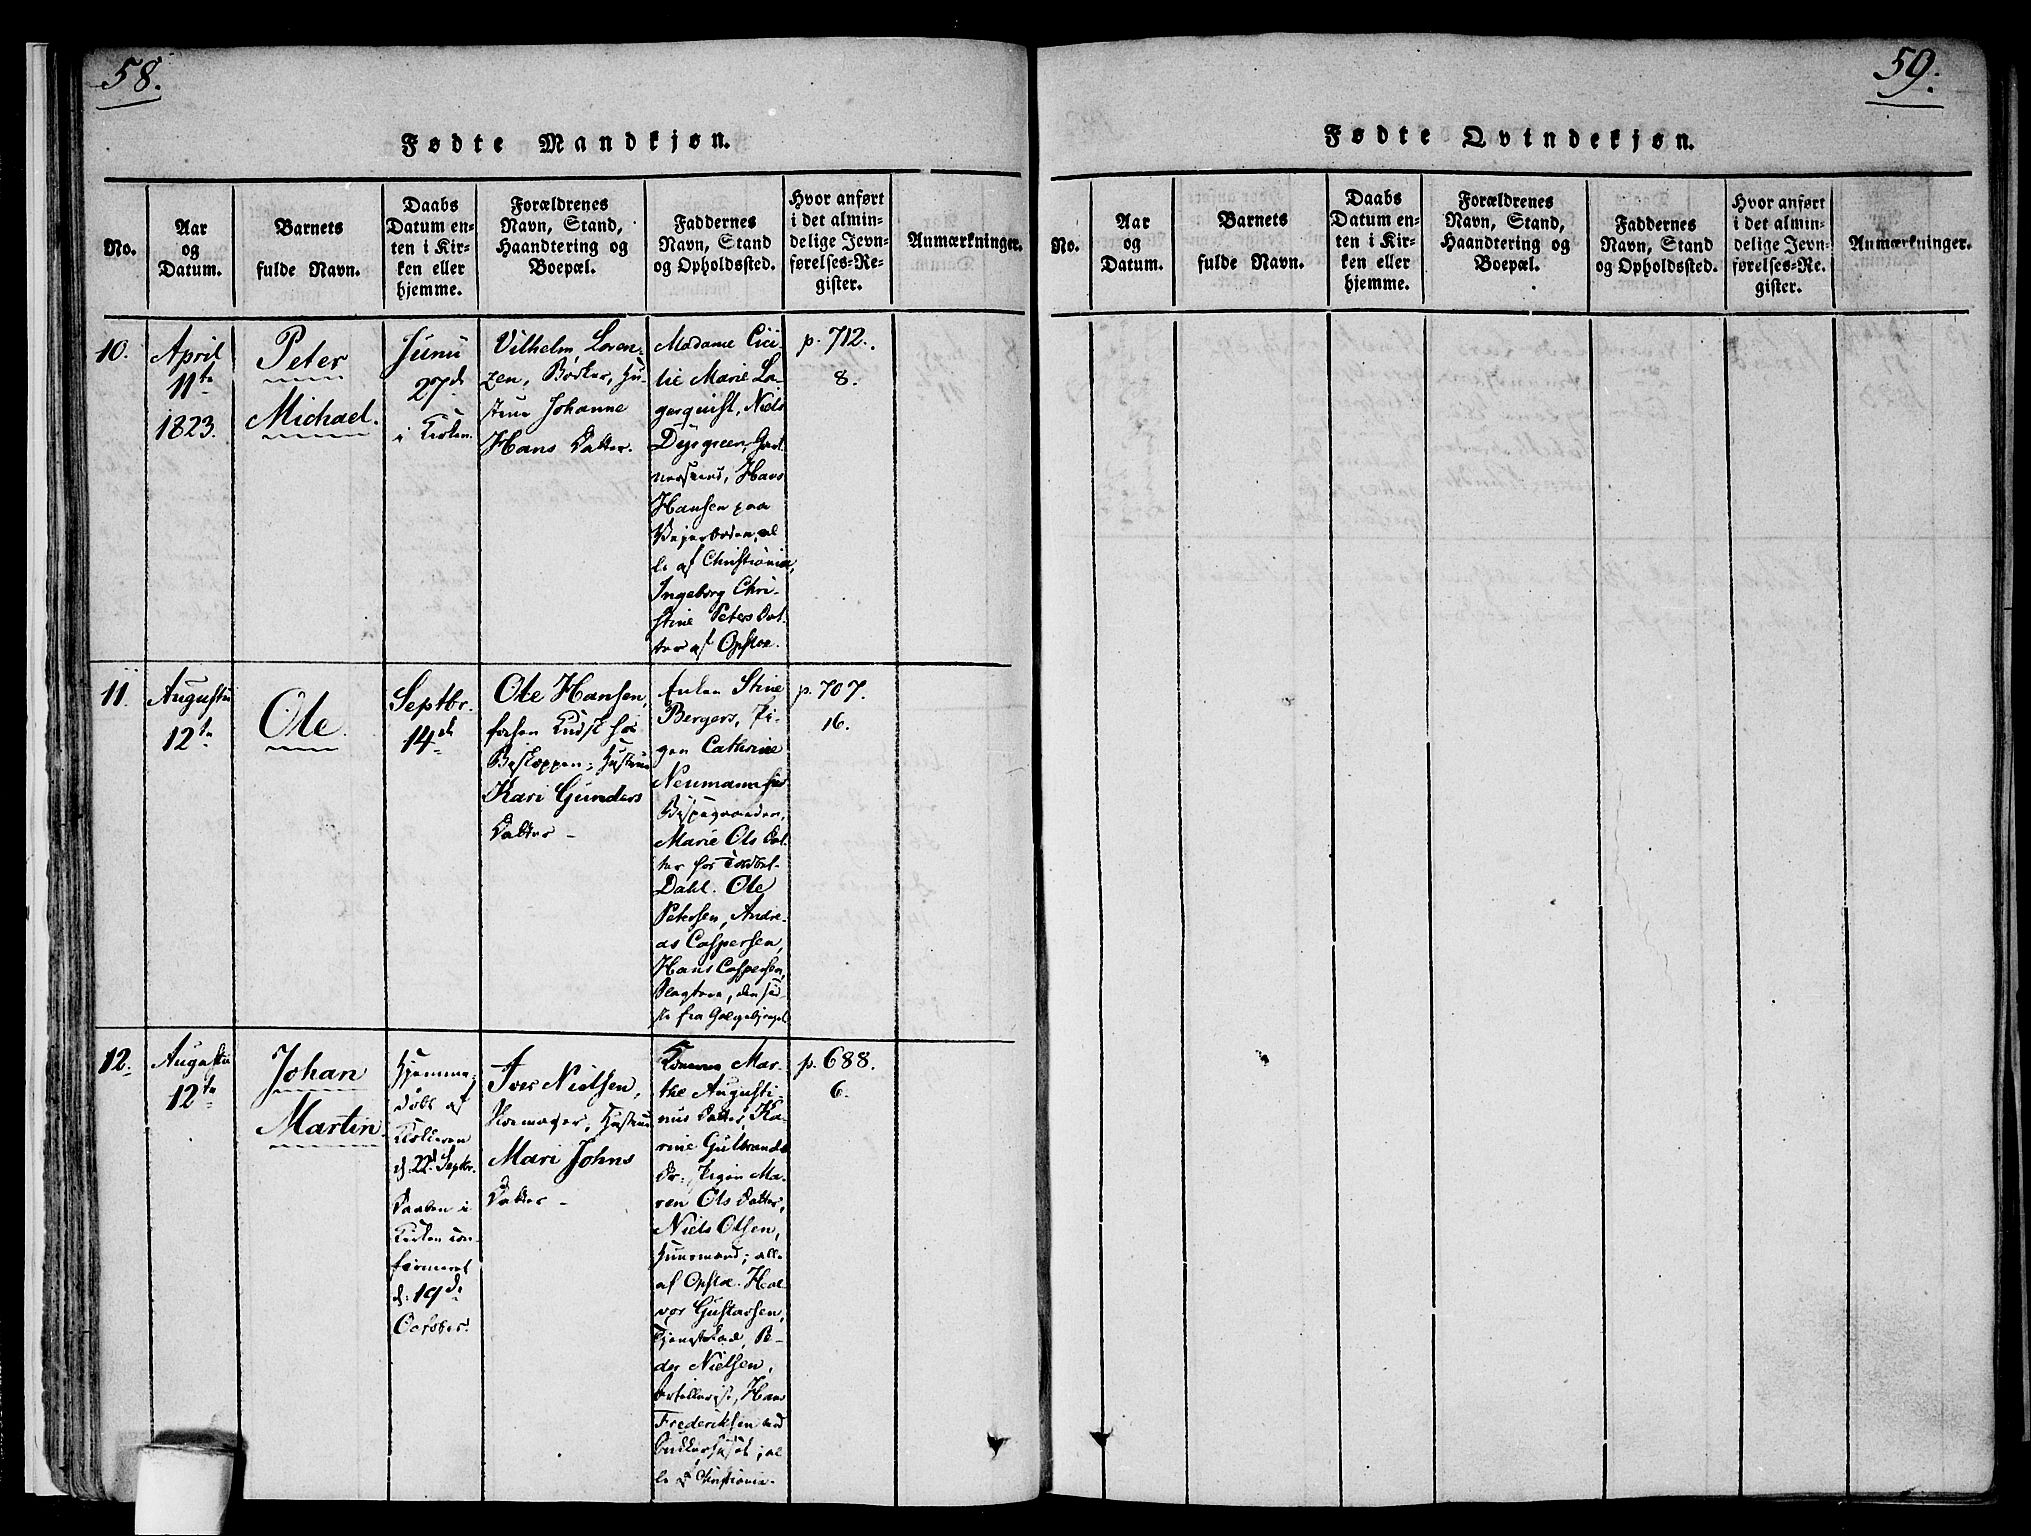 58.
Fødte Mandkjøn.
No.
Aar
og
Datum.
Barnets
fulde Navn.
Daabs
Datum en-
ten i Kir-
ken eller
hjemme.
Forældrenes
Navn, Stand,
Haandtering og
Boepæl.
Faddernes
Navn, Stand
og Opholdssted.
Hvor anført
i det almin-
delige Jevn-
førelses-Re-
gister.
Anmærkninger.
10.
April
11te
1823.
Peter
Michael.
Junii
27d
i Kirken.
Vilhelm Loren-
zen, Bødker, Hu-
strue Johanne
Hans Datter.
Madame Cici-
lie Marie La-
gerquist, Niels
Hans
Hansen paa
al-
le af Christiania,
Ingeborg Chri-
stine Peters Dat-
ter af Opsloe.
p. 712.
8.
11.
Augustii
12te
Ole.
Septbr.
14d
Ole Hansen,
forhen Kudsk hos
Biskoppen, Hustrue
Kari Gunders
Datter –
Enken Stine
Bergers, Pi-
gen Cathrine
Neumann hos
Marie Ols Dat-
ter hos
Dahl. Ole
Petersen, Andre-
as Caspersen,
Hans Caspersen,
Slagtere, den sid-
ste fra Galgebjerget
p. 707.
16.
12.
Augustii
12te
Johan
Martin.
Hjemme-
døbt af
Klokkeren
d: 22d Septbr.
Daaben i
Kirken con-
firmeret
d: 19de
October.
Iver Nielsen,
Skoemager, Hustrue
Mari Johns
Datter –
Konerne Mar-
the Augusti-
nus Datter, Ka-
rine Gulbrands
Dr: Pigen Ma-
ren Ols Datter,
Niels Olsen,
Huusmand; alle
af Opsloe. Hal-
vor Gustavsen,
Tjenestekarl, Pe-
der Nielsen,
Artillerist, Hans
Frederiksen ved
Tugthuset; al-
le i Christiania.
p. 688.
6.
59.
Fødte Qvindekjøn.
No.
Aar
og
Datum.
Barnets
fulde Navn.
Daabs
Datum en-
ten i Kir-
ken eller
hjemme.
Forældrenes
Navn, Stand,
Haandtering og
Boepæl.
Faddernes
Navn, Stand
og Opholdssted.
Hvor anført
i det almin-
delige Jevn-
førelses-Re-
gister.
Anmærkninger.